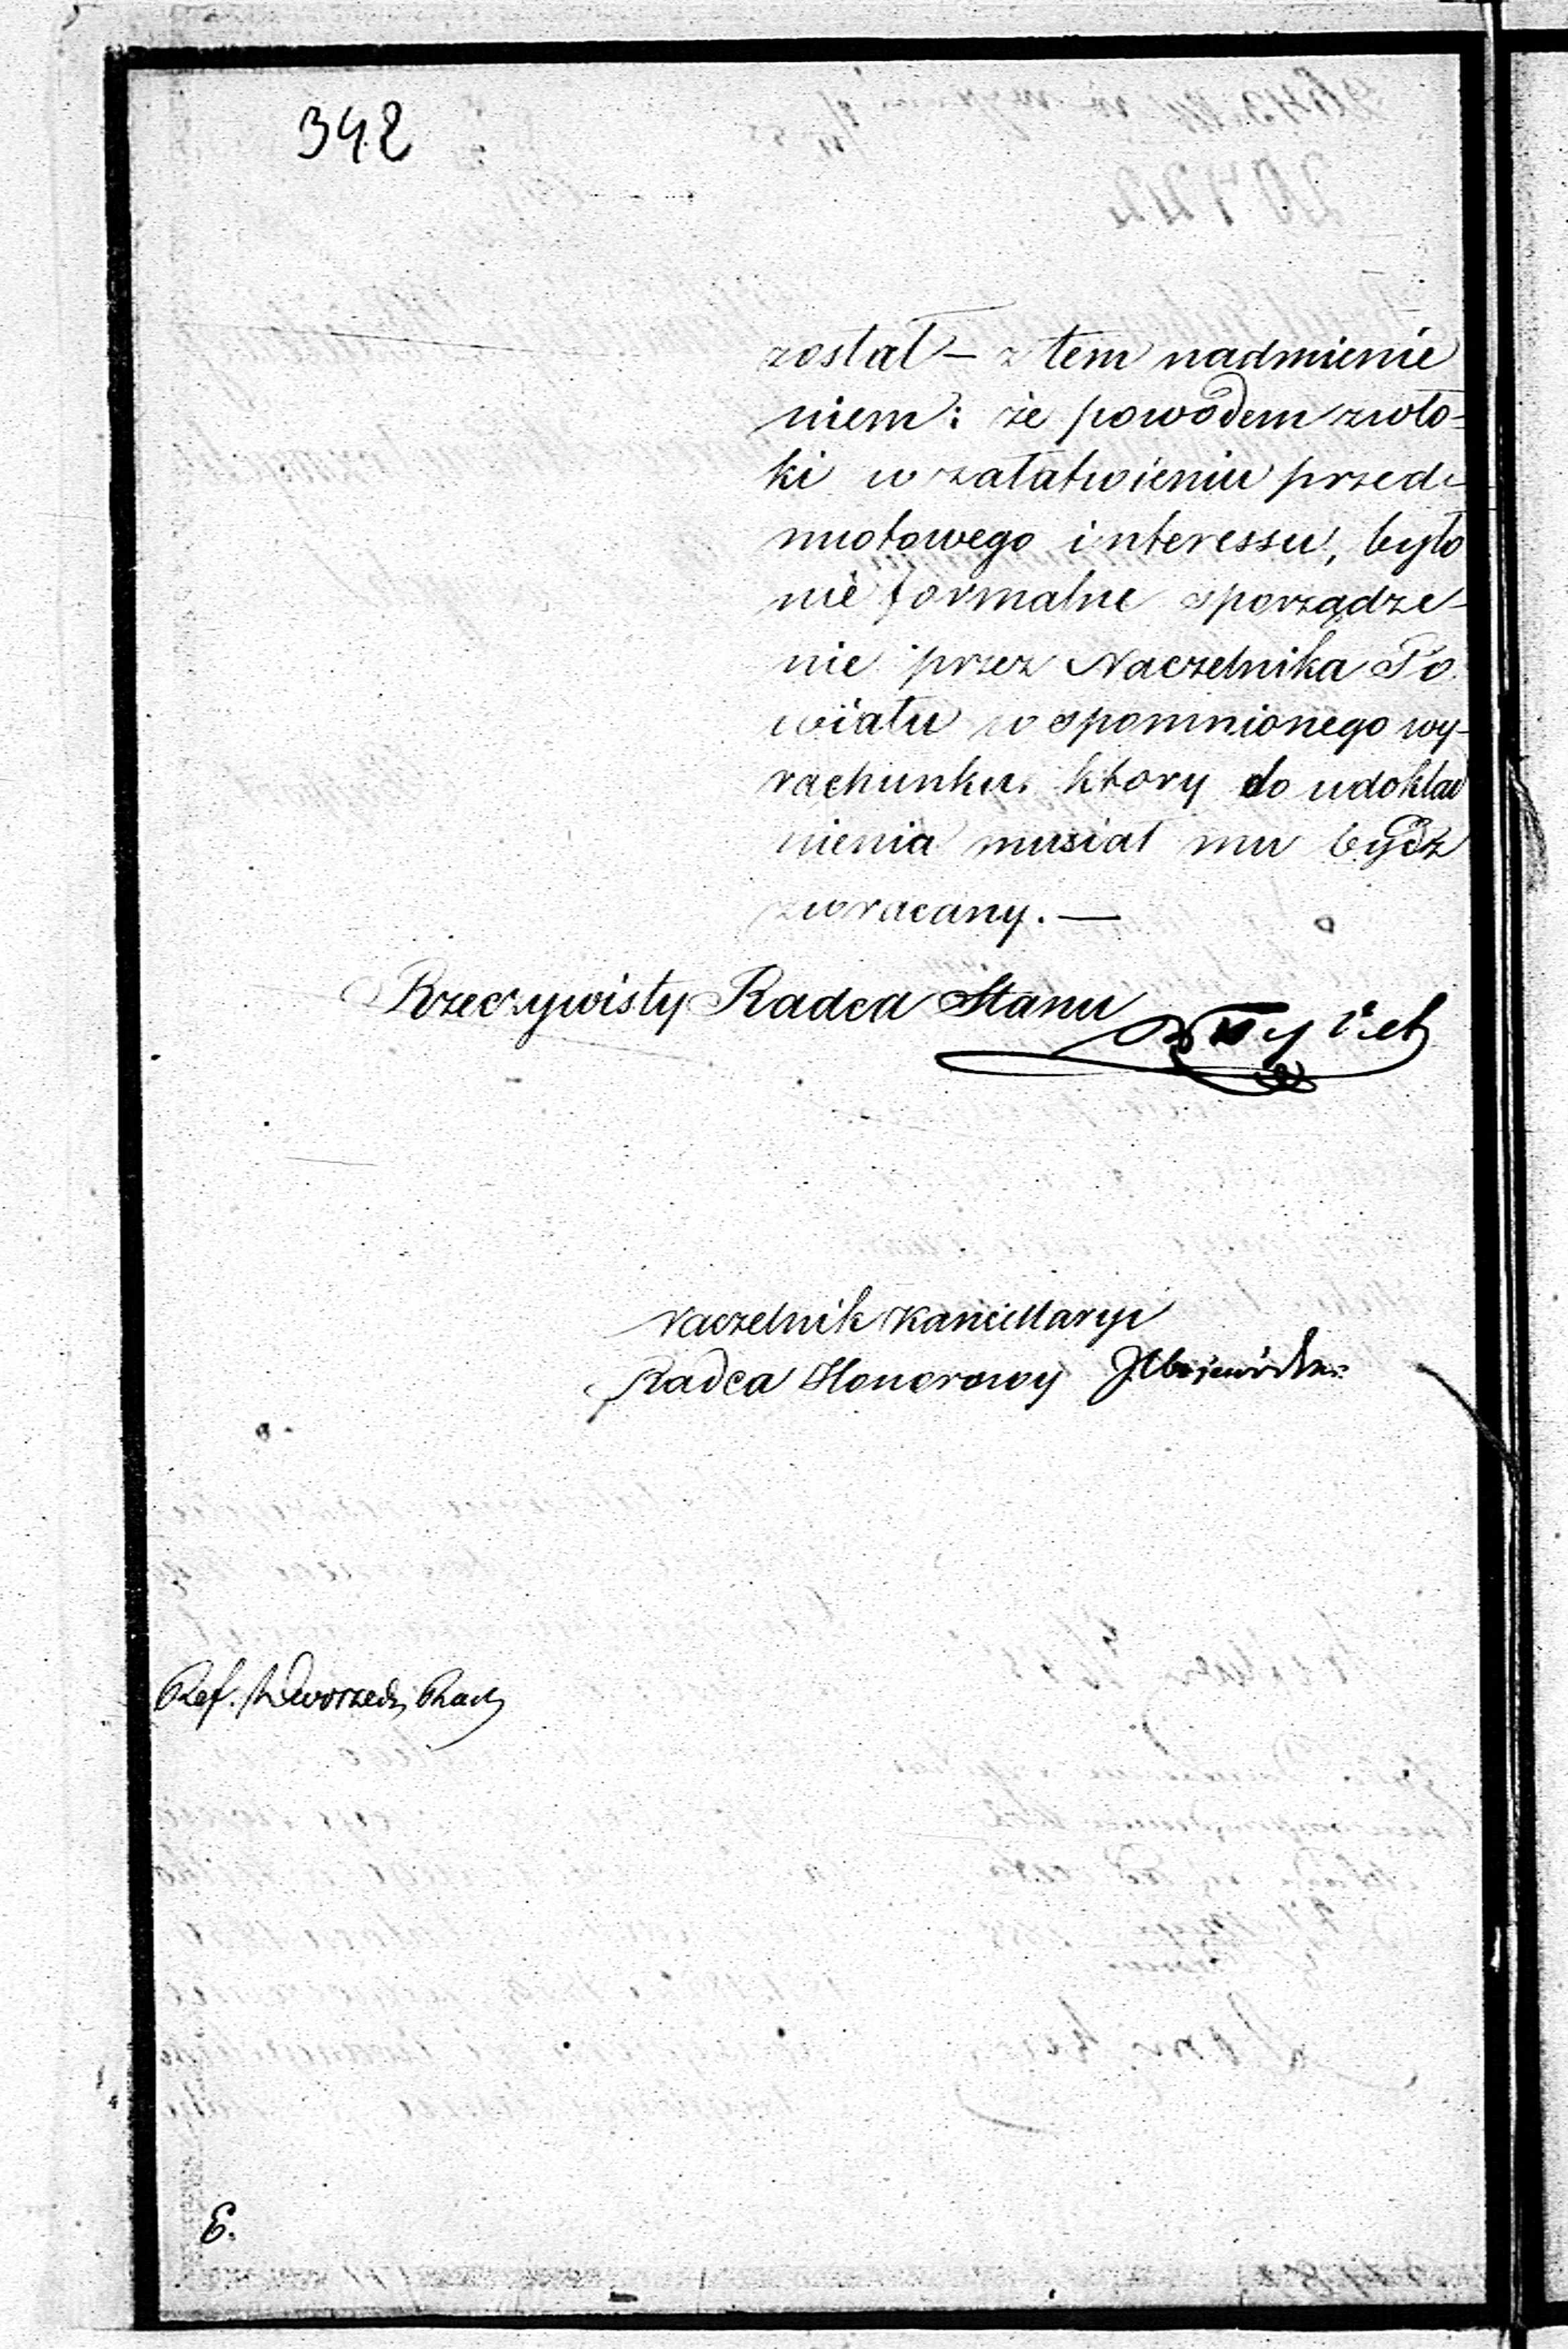 342
został — z tem nadmienie
niem: że powodem zwło-
ki w załatwieniu przed-
miotowego interessu, było
nie formalne sporządze-
nie przez Naczelnika Po
wiatu wspomnionego wy-
rachunku, ktory do udokład
nienia musiał mu bydź
zwracany. —
Rzeczywisty Radca Stanu
Naczelnik Kancellaryi
Radca Honorowy
Ref.
E.